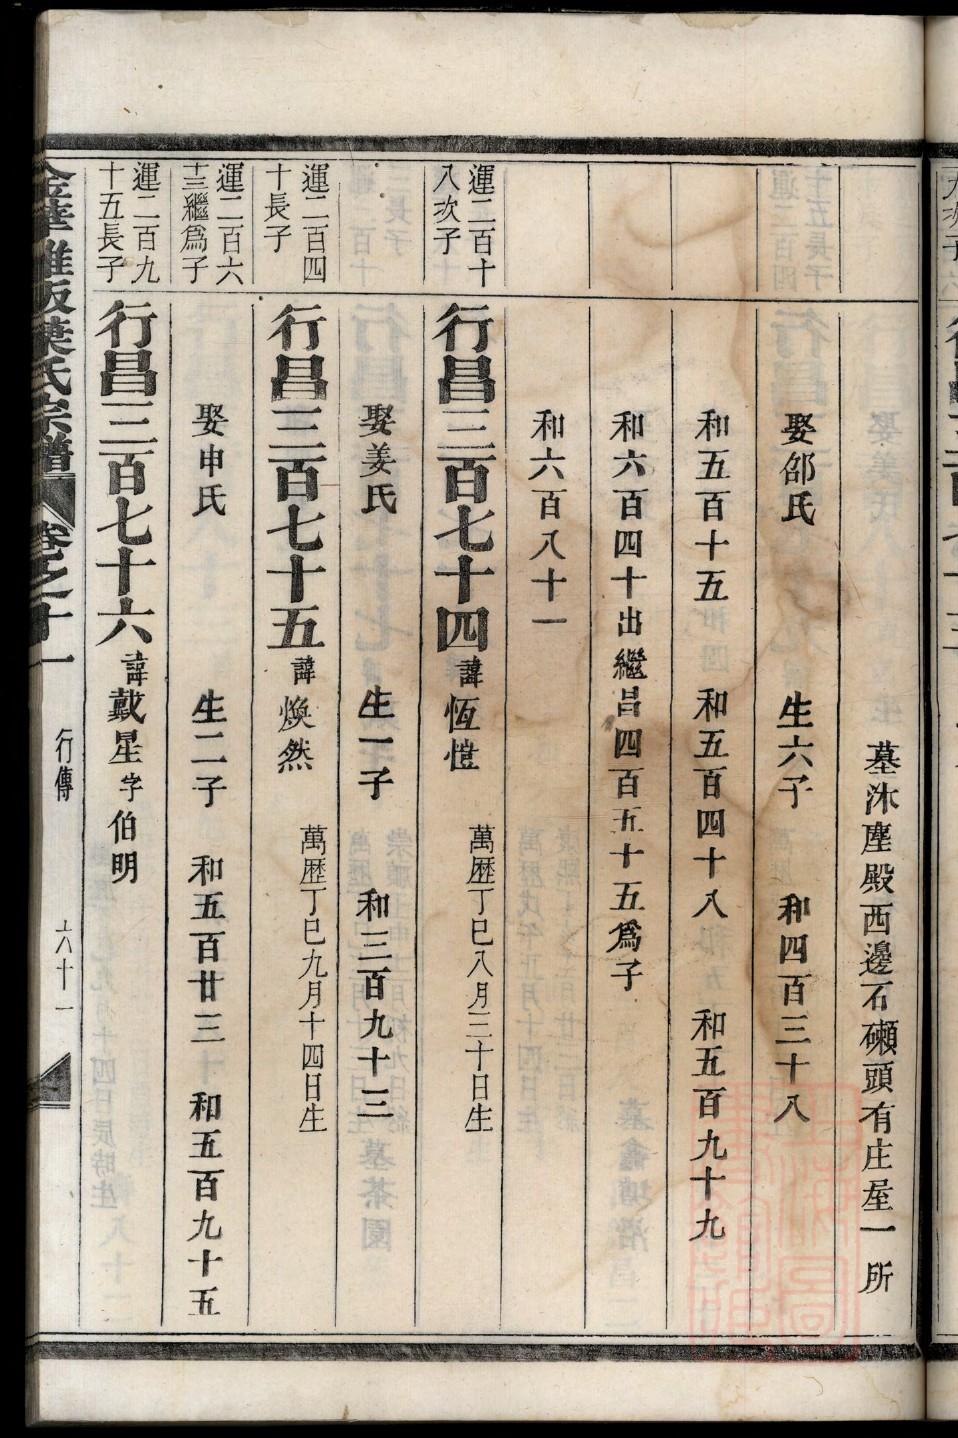 墓沐塵殿西邊石磜頭有庄屋一所
娶邵氏 生六子 和四百三十八
和五百十五 和五百四十八 和五百九十九
和六百四十出繼昌四百五十五為子
和六百八十一
運二百十
八次子
行昌三百七十四 諱恆愷 萬歷丁巳八月三十日生
娶姜氏 生一子 和三百九十三
運二百四
十長子
行昌三百七十五 諱煥然 萬歷丁巳九月十四日生
運二百六
十三繼為子
娶申氏 生二子 和五百廿三 和五百九十五
運二百九
十五長子
行昌三百七十六 諱戴星 字伯明
宗譜 卷之十一 行傳 六十一